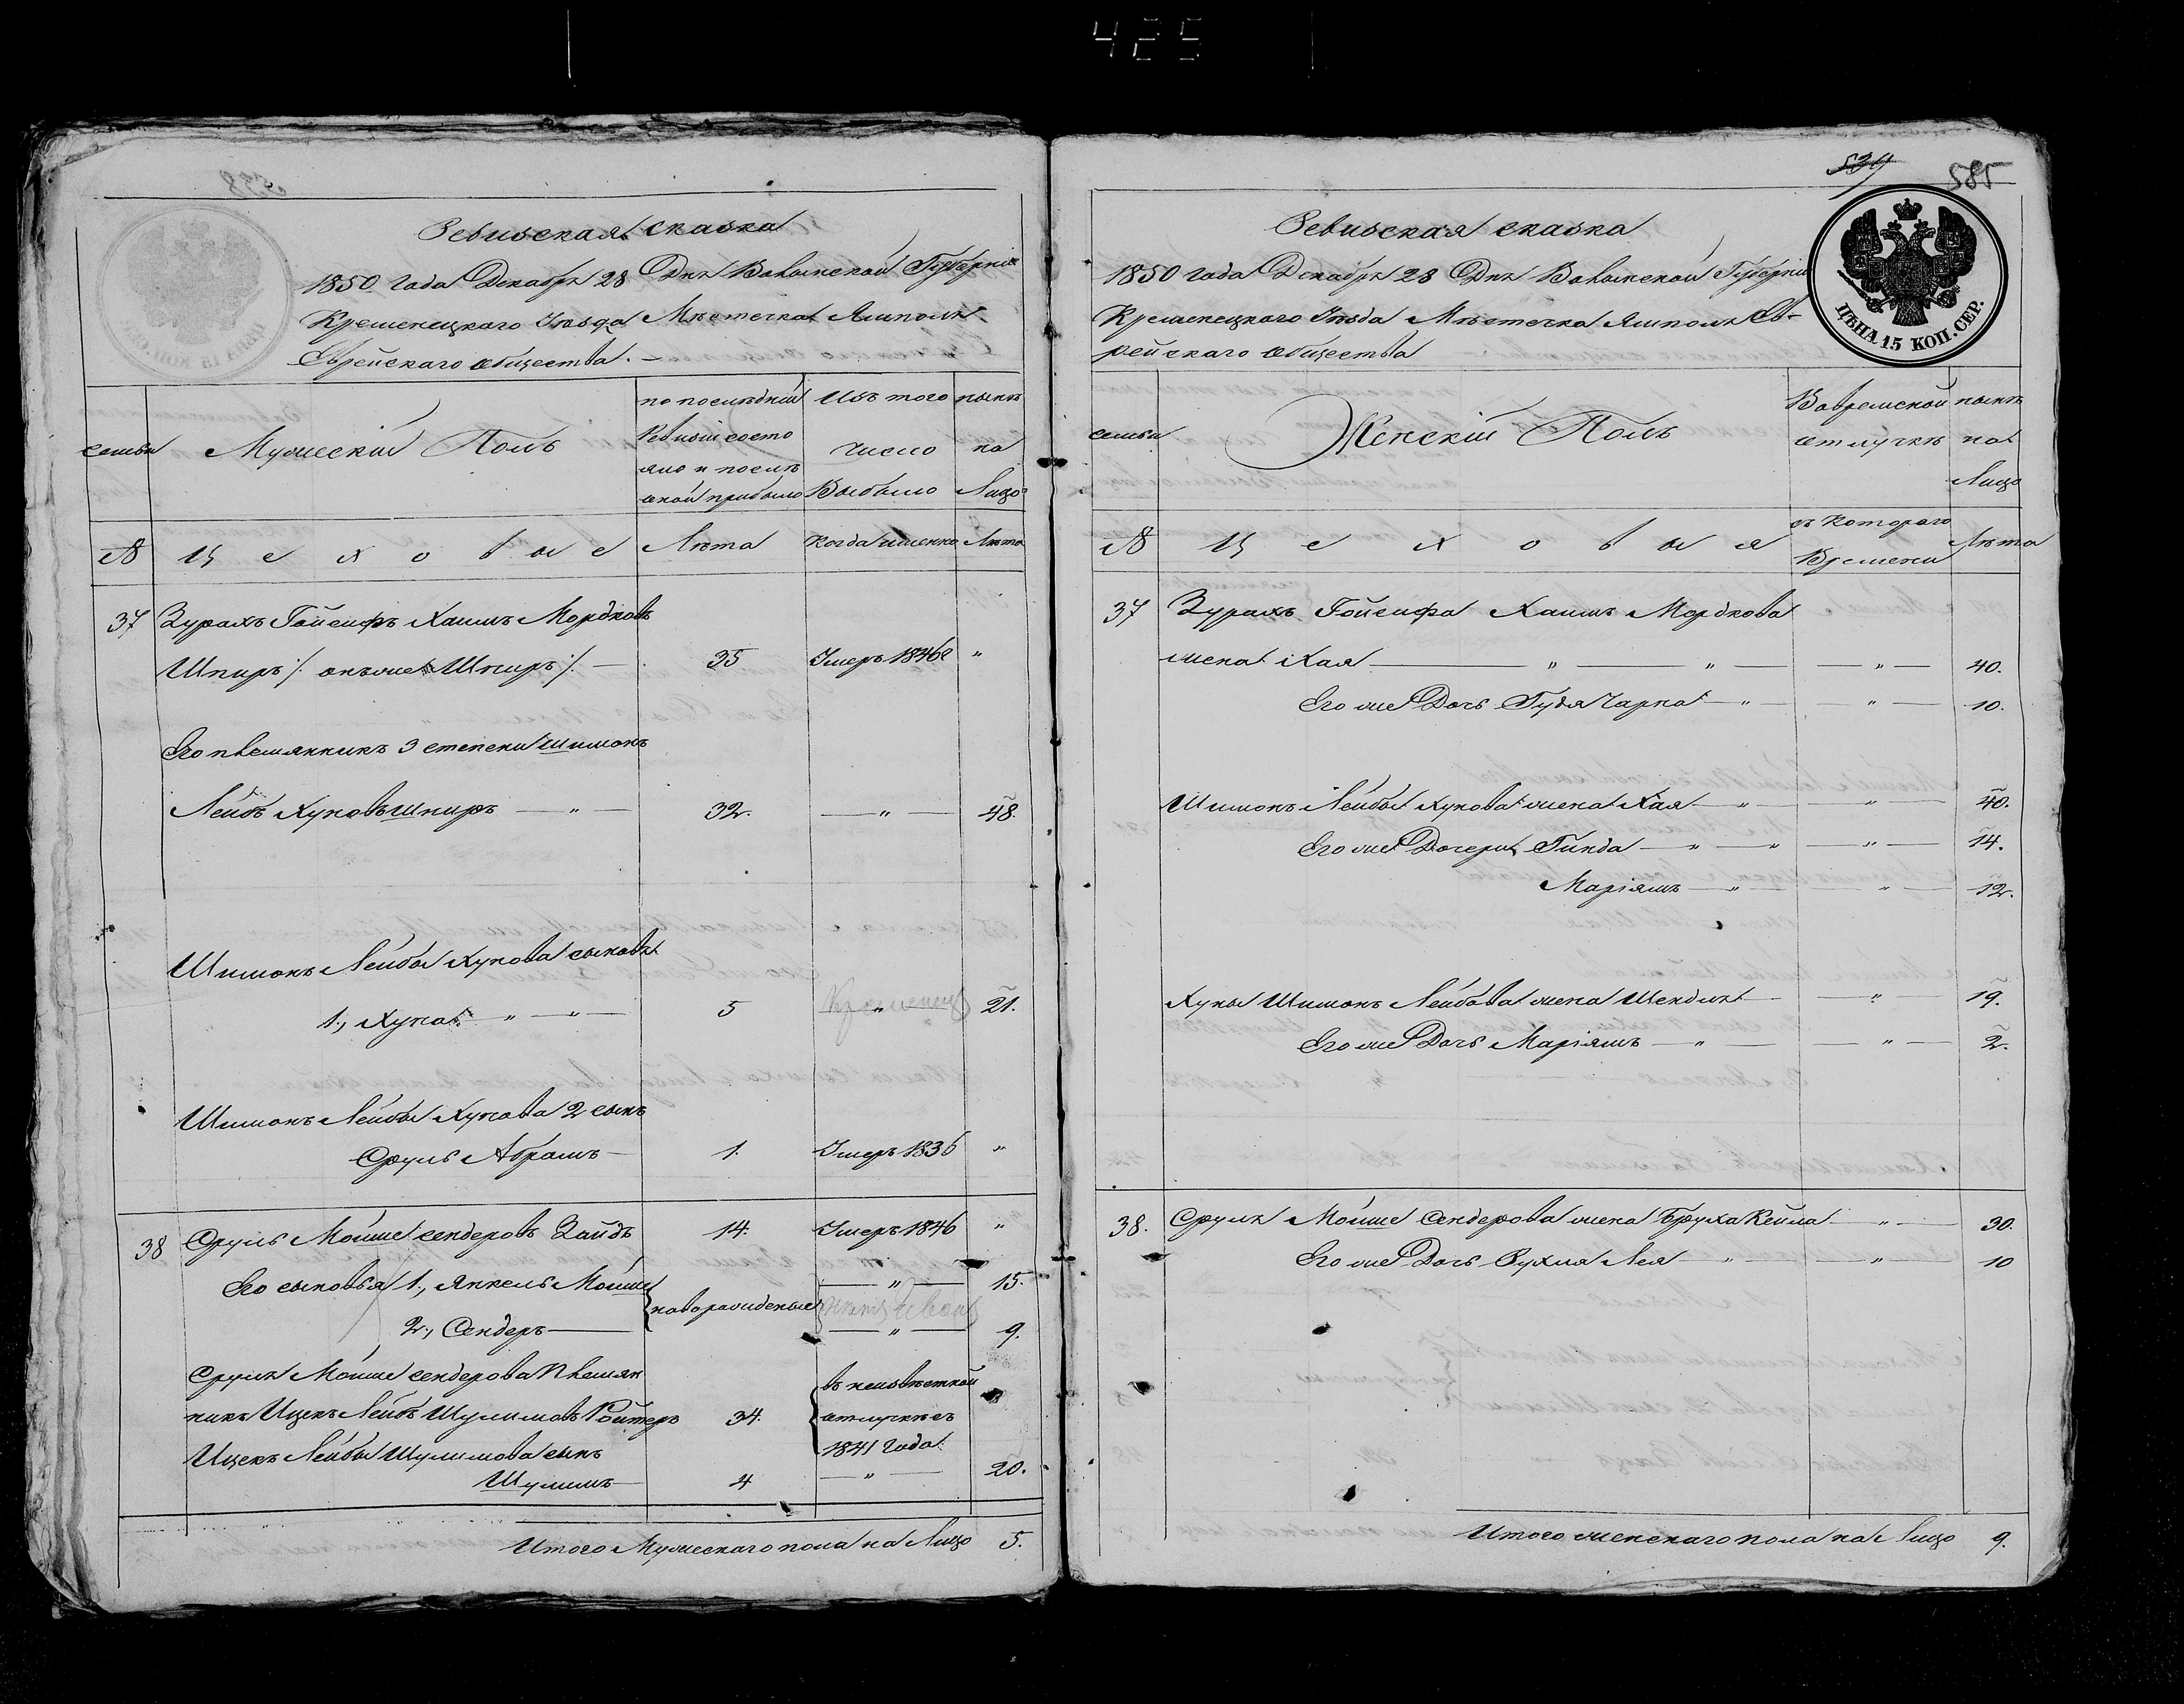 425
538
Ревизская сказка
1850 года Декабря 28 Дня Волынской Губернии
Кременецкаго Уезда Местечка Ямполя
Еврейскаго общества. —
семьи
Мужеский Полъ
по последней Ревизии состояло и после оной прибыло
Изъ того число Выбыло
ныне на Лицо
№
Цеховые
Лета
Когда именно
Лета
37 Зурахъ Гойсифъ Хаимъ Мордковъ
Шпиръ /: онъ же Шпиръ :/ — 35 Умеръ 1846 "
Его племянникъ 3 степени Шимонъ
Лейбъ Хуновъ Шпиръ — " — 32. — " — 48.
Шимонъ Лейбы Хунова сыновья
1., Хуна " — " — 5 Кременец " 21.
Шимонъ Лейбы Хунова 2 сынъ
Сруль Абрамъ — 1. Умеръ 1836 "
38 Сруль Мойше Сендеровъ Зайдъ 14. Умеръ 1846 "
Его сыновья 1., Янкель Мойше — " — 15.
новорожденые
2., Сендеръ — — " — 9.
Сруля Мойше Сендерова племян
никъ Ицекъ Лейбъ Шулимовъ Ройтеръ 34. въ неизвестной отлучке съ 1841 года "
Ицекъ Лейбы Шулимова сынъ
Шулимъ 4 — " — 20.
Итого Мужескаго пола на Лицо 5.
539 585
Ревизская сказка
ЦѢНА 15 КОП. СЕР.
1850 года Декабря 28 Дня Волынской Губернии
Кременецкаго Уезда Местечка Ямполя Ев-
рейскаго общества
семьи
Женский Полъ
Во временной отлучке
ныне на Лицо
№
Цеховыя
съ Котораго Времени
Лета
37 Зурахъ Гойсифа Хаимъ Мордкова
жена Хая — " — " — — " — 40.
Его же Дочь Гудя Чарна — " — " — 10.
Шимонъ Лейбы Хунова жена Хая — " — " — 40.
Его же Дочери Гинда — " — " — " — 14.
Маріямъ — " — " — 12.
Хуны Шимонъ Лейбова жена Шендля — " — 19.
Его же Дочь Маріямъ — " — — " — 2.
38. Сруля Мойше Сендерова жена Бруха Кейла — " — 30.
Его же Дочь Рухля Лея — " — " — 10
Итого женскаго пола на Лицо 9.